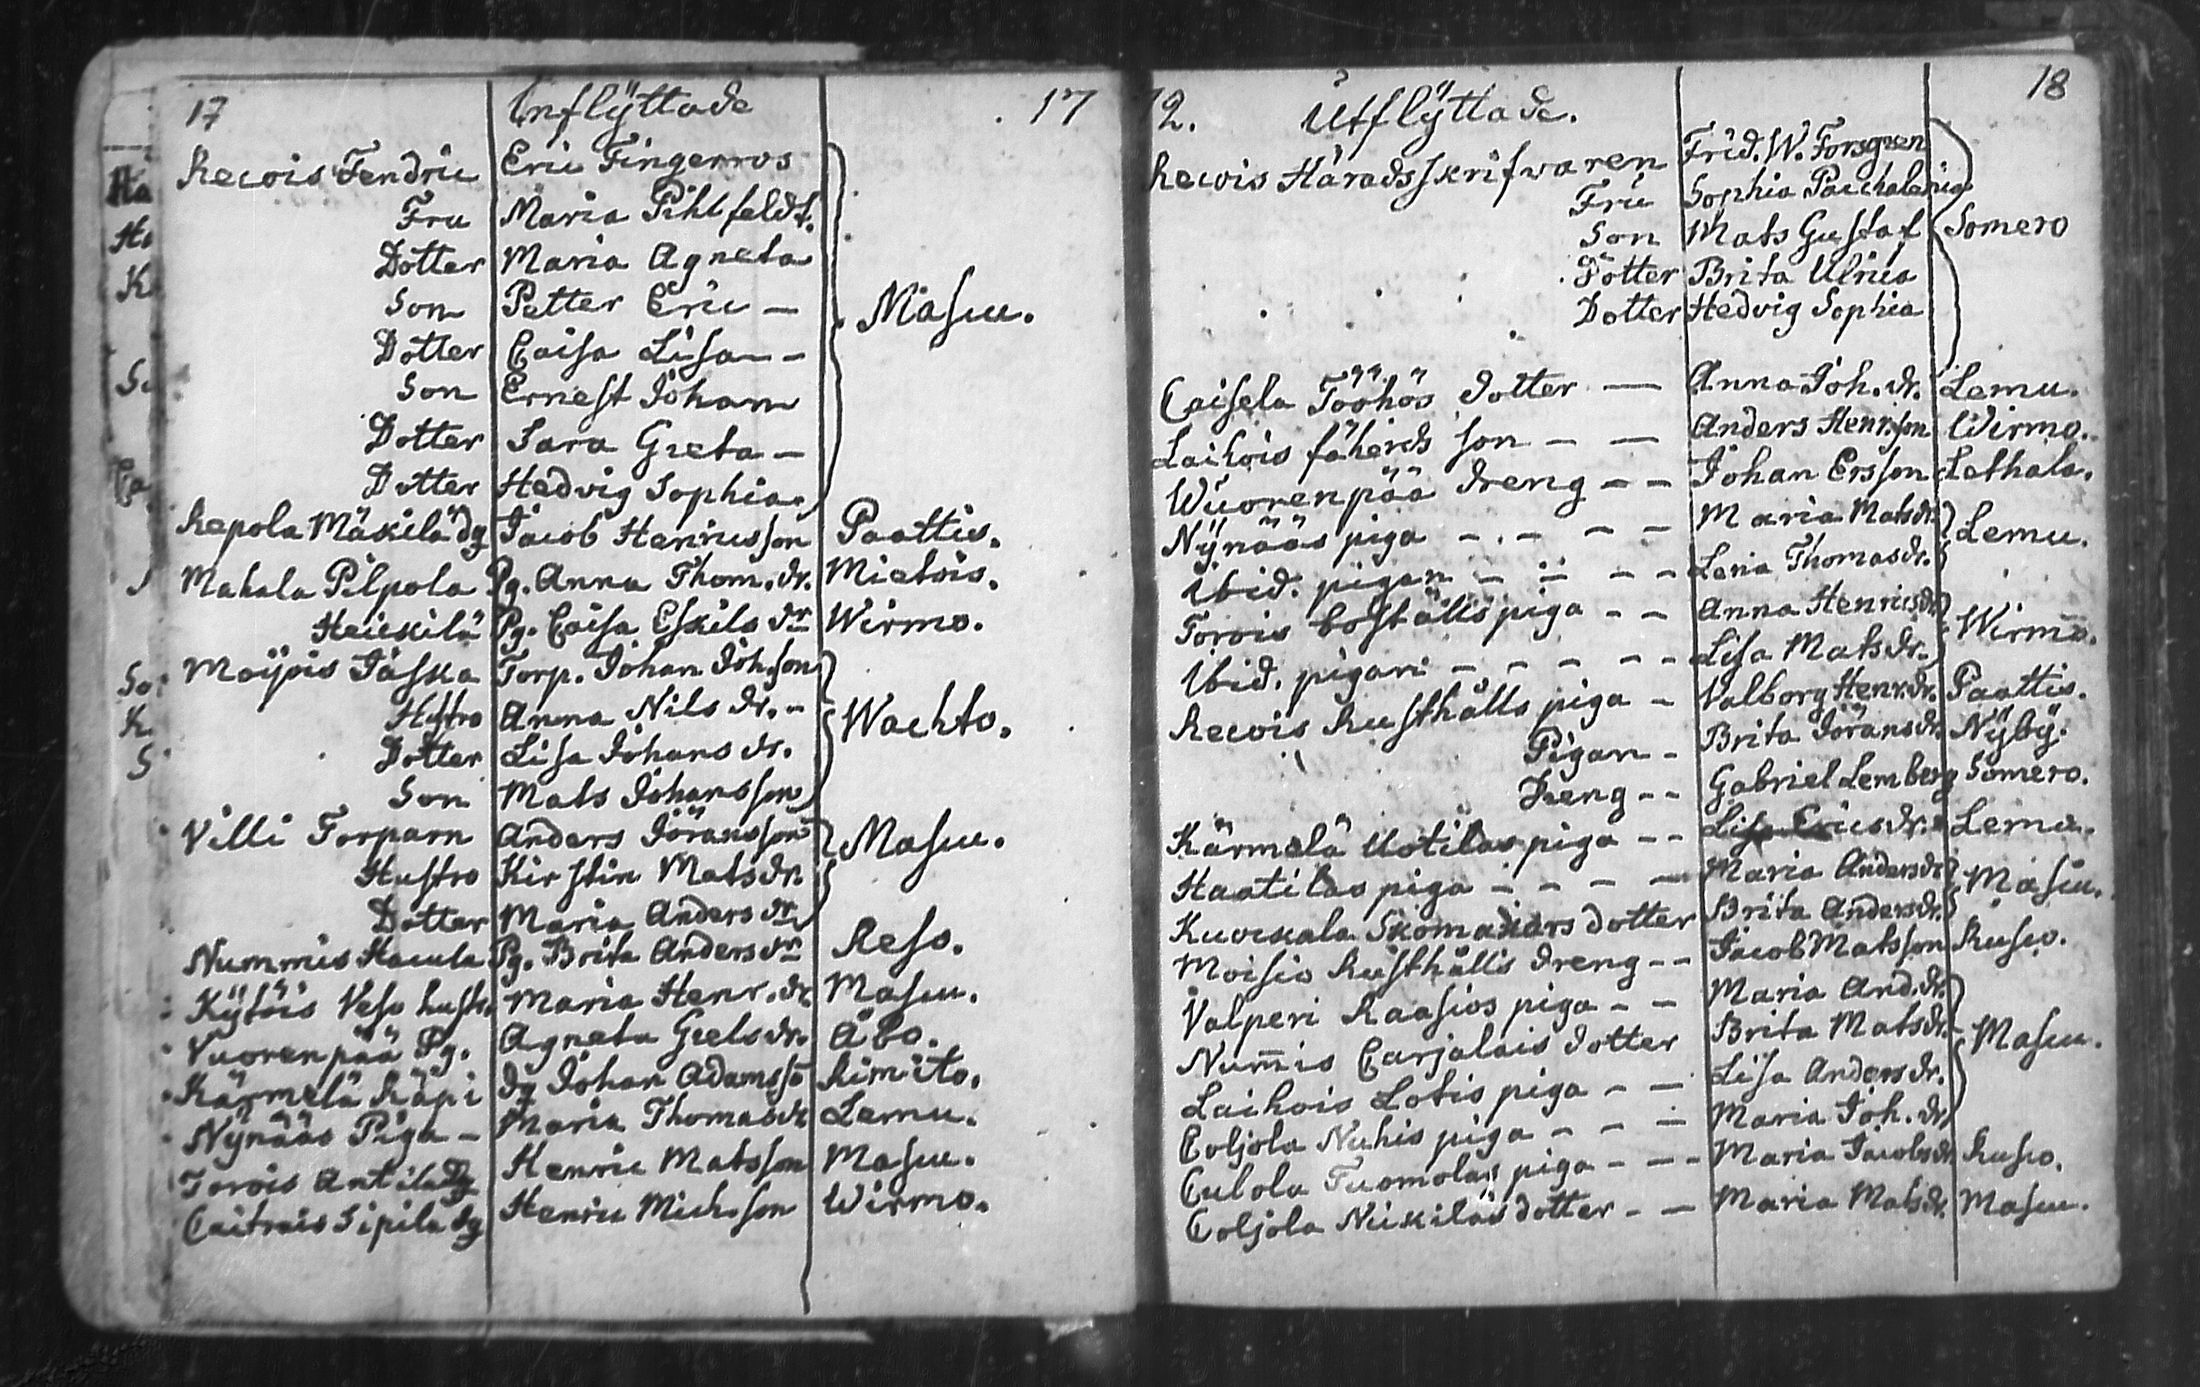 17 Inflÿttade 17
Recois Fendric Eric Fingerroos
Fru Maria Pihlfeldt.
Dotter Maria Agneta
Son Petter Eric —
Dotter Caisa Lisa — Mascu.
Son Ernest Johan
Dotter Sara Greta —
Dotter Hedvig Sophia
Repola Mäkilä dg Jacob Henricsson Paattis.
Mahala Pilpola Pg. Anna Thom. dr. Mietois.
Heickilä Pg. Caisa Eskils dr Wirmo.
Moijois Jaska Torp. Johan Joh.son
Hustro Anna Nils dr. – Wachto.
Dotter Lisa Johans dr.
Son Mats Johansson
Villi Torparn Anders Jöransson Mascu.
Hustro Kirstin Matsdr.
Dotter Maria Anders dr
Nummis Pg. Brita Anders dr Reso.
Kÿtöis Veso hustr. Maria Henr. dr Mascu.
Vuorenpää Pg. Agneta Grels dr. Åbo.
Kärmelä Räpi dg Johan Adamsso Kimito.
Nÿnääs Piga – Maria Thomasdr Lemu.
Torois Antila Dg Henric Matsson Mascu.
Caitrais Sipila dg Henric Mich.son Wirmo.
12. Utflÿttade. 18
Recois Häradsskrifwaren Frid. W. Forsgren
Fru Sophia
Son Mats Gustaf Somero
Dotter Brita Ulrica
Dotter Hedvig Sophia
Caisela Tööhös dotter — Anna Joh. dr. Lemu.
Laihois fäherds son – — Anders Henr.son Wirmo.
Wuorenpää dreng – – Johan Ersson Lethala.
Nÿnääs piga – . – – – Maria Matsdr. Lemu.
Ibid. pigan – – – – Lena Thomasdr.
Torois boställs piga – – Anna Henricsdr. Wirmo.
Ibid. pigan – – – – – Lisa Matsdr.
Recois Rusthålls piga – Valborg Henr.dr. Paattis.
Pigan – Brita Jöransdr. Nÿbÿ.
Dreng – – Gabriel Lemberg Somero.
Kärmelä Uotilas piga – – Lisa Ericsdr. Lemu.
Haatilas piga – – – — Maria Andersdr. Mascu.
Kuockala Skomakars dotter Brita Andersdr.
Moisio Rusthålls dreng – – Jacob Matsson Rusco.
Valperi Raasios piga – – Maria And. dr.
Num̄is Carjalais dotter Brita Matsdr. Mascu.
Laihois Lotis piga – – Lisa Anders dr.
Coljola Nuhis piga – – – Maria Joh. dr.
Culola Tuomolas piga – – – Maria Jacobsdr Rusco.
Coljola Nickiläs dotter – – Maria Matsdr. Mascu.